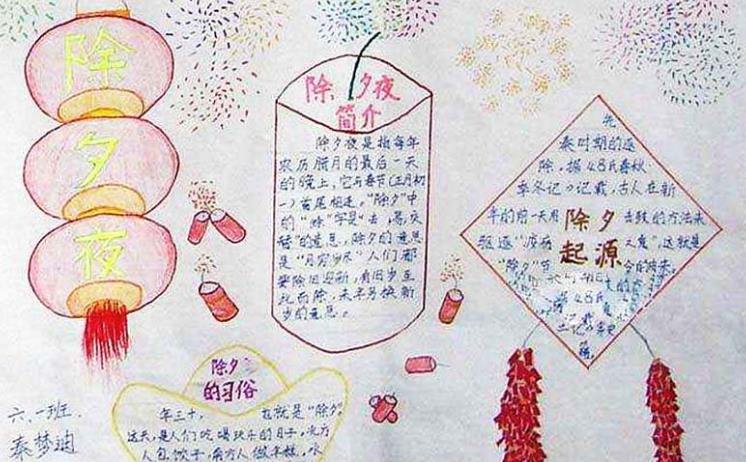 除
夕
夜
除夕夜
简介
除夕夜是指每年
农历腊月的最后一天
的晚上，它与春节（正月初
一）首尾相连。“除夕”中
的“除”字是“去，易，交
替”的意思，除夕的意思
是“月穷岁尽”人们都
要除旧迎新，有旧岁至
此而除，来年另换新
岁的意思。
先
秦时期的逐
除，据《吕氏春秋·
季冬记》记载，古人在新
年的前一天用 击鼓的方法来
驱逐“疫疠 之鬼”，这就是
“除夕”节
除夕
起源
除夕
的习俗
年三十， 也就是“除夕”。
这天，是人们吃喝玩乐的日子，北方
人包饺子，南方人做年糕，水
六、一班
秦梦迪